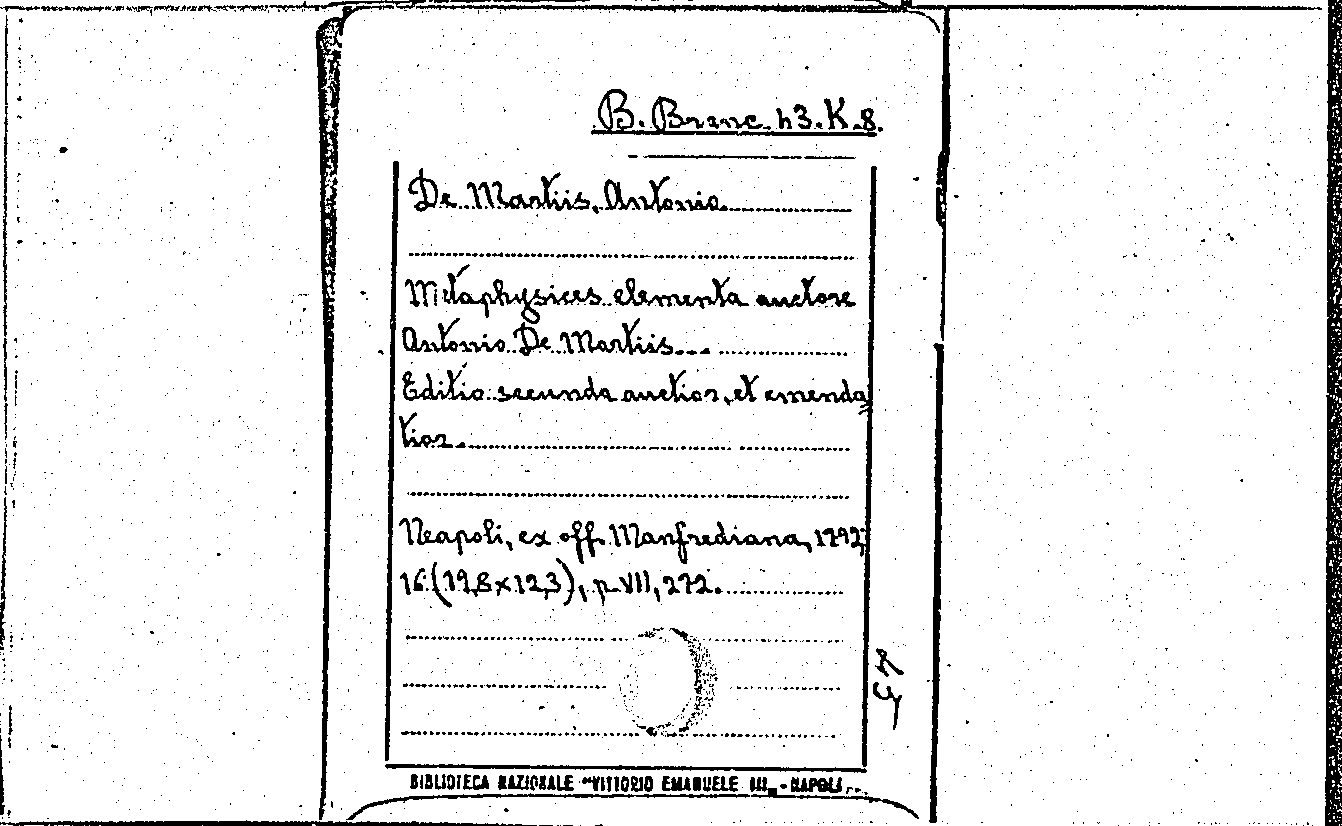 B. Branc. 43.K.8.
De Martiis, Antonio.
Metaphysices elementa auctore
Antonio De Martiis...
Editio secunda auctior, et emenda
tior.
Neapoli, ex off. Manfrediana, 1792;
16.(19,8x12,3), p. VII, 272.
BIBLIOTECA NAZIONALE "VITTORIO EMANUELE III" - NAPOLI